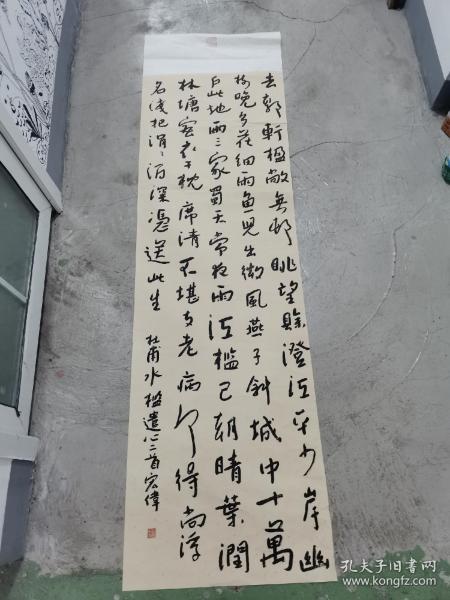 去郭軒楹敞無邨眺望賒澄江平少岸幽
樹晚多花細雨鱼兒出微風燕子斜城中十萬
户此地兩三家蜀天常夜雨江檻已朝晴葉潤
林塘密衣干枕席清不堪支老病何得尚浮
名淺把涓〻酒深憑送此生
杜甫水檻遣心二首宏偉
孔夫子旧书网
www.kongfz.com